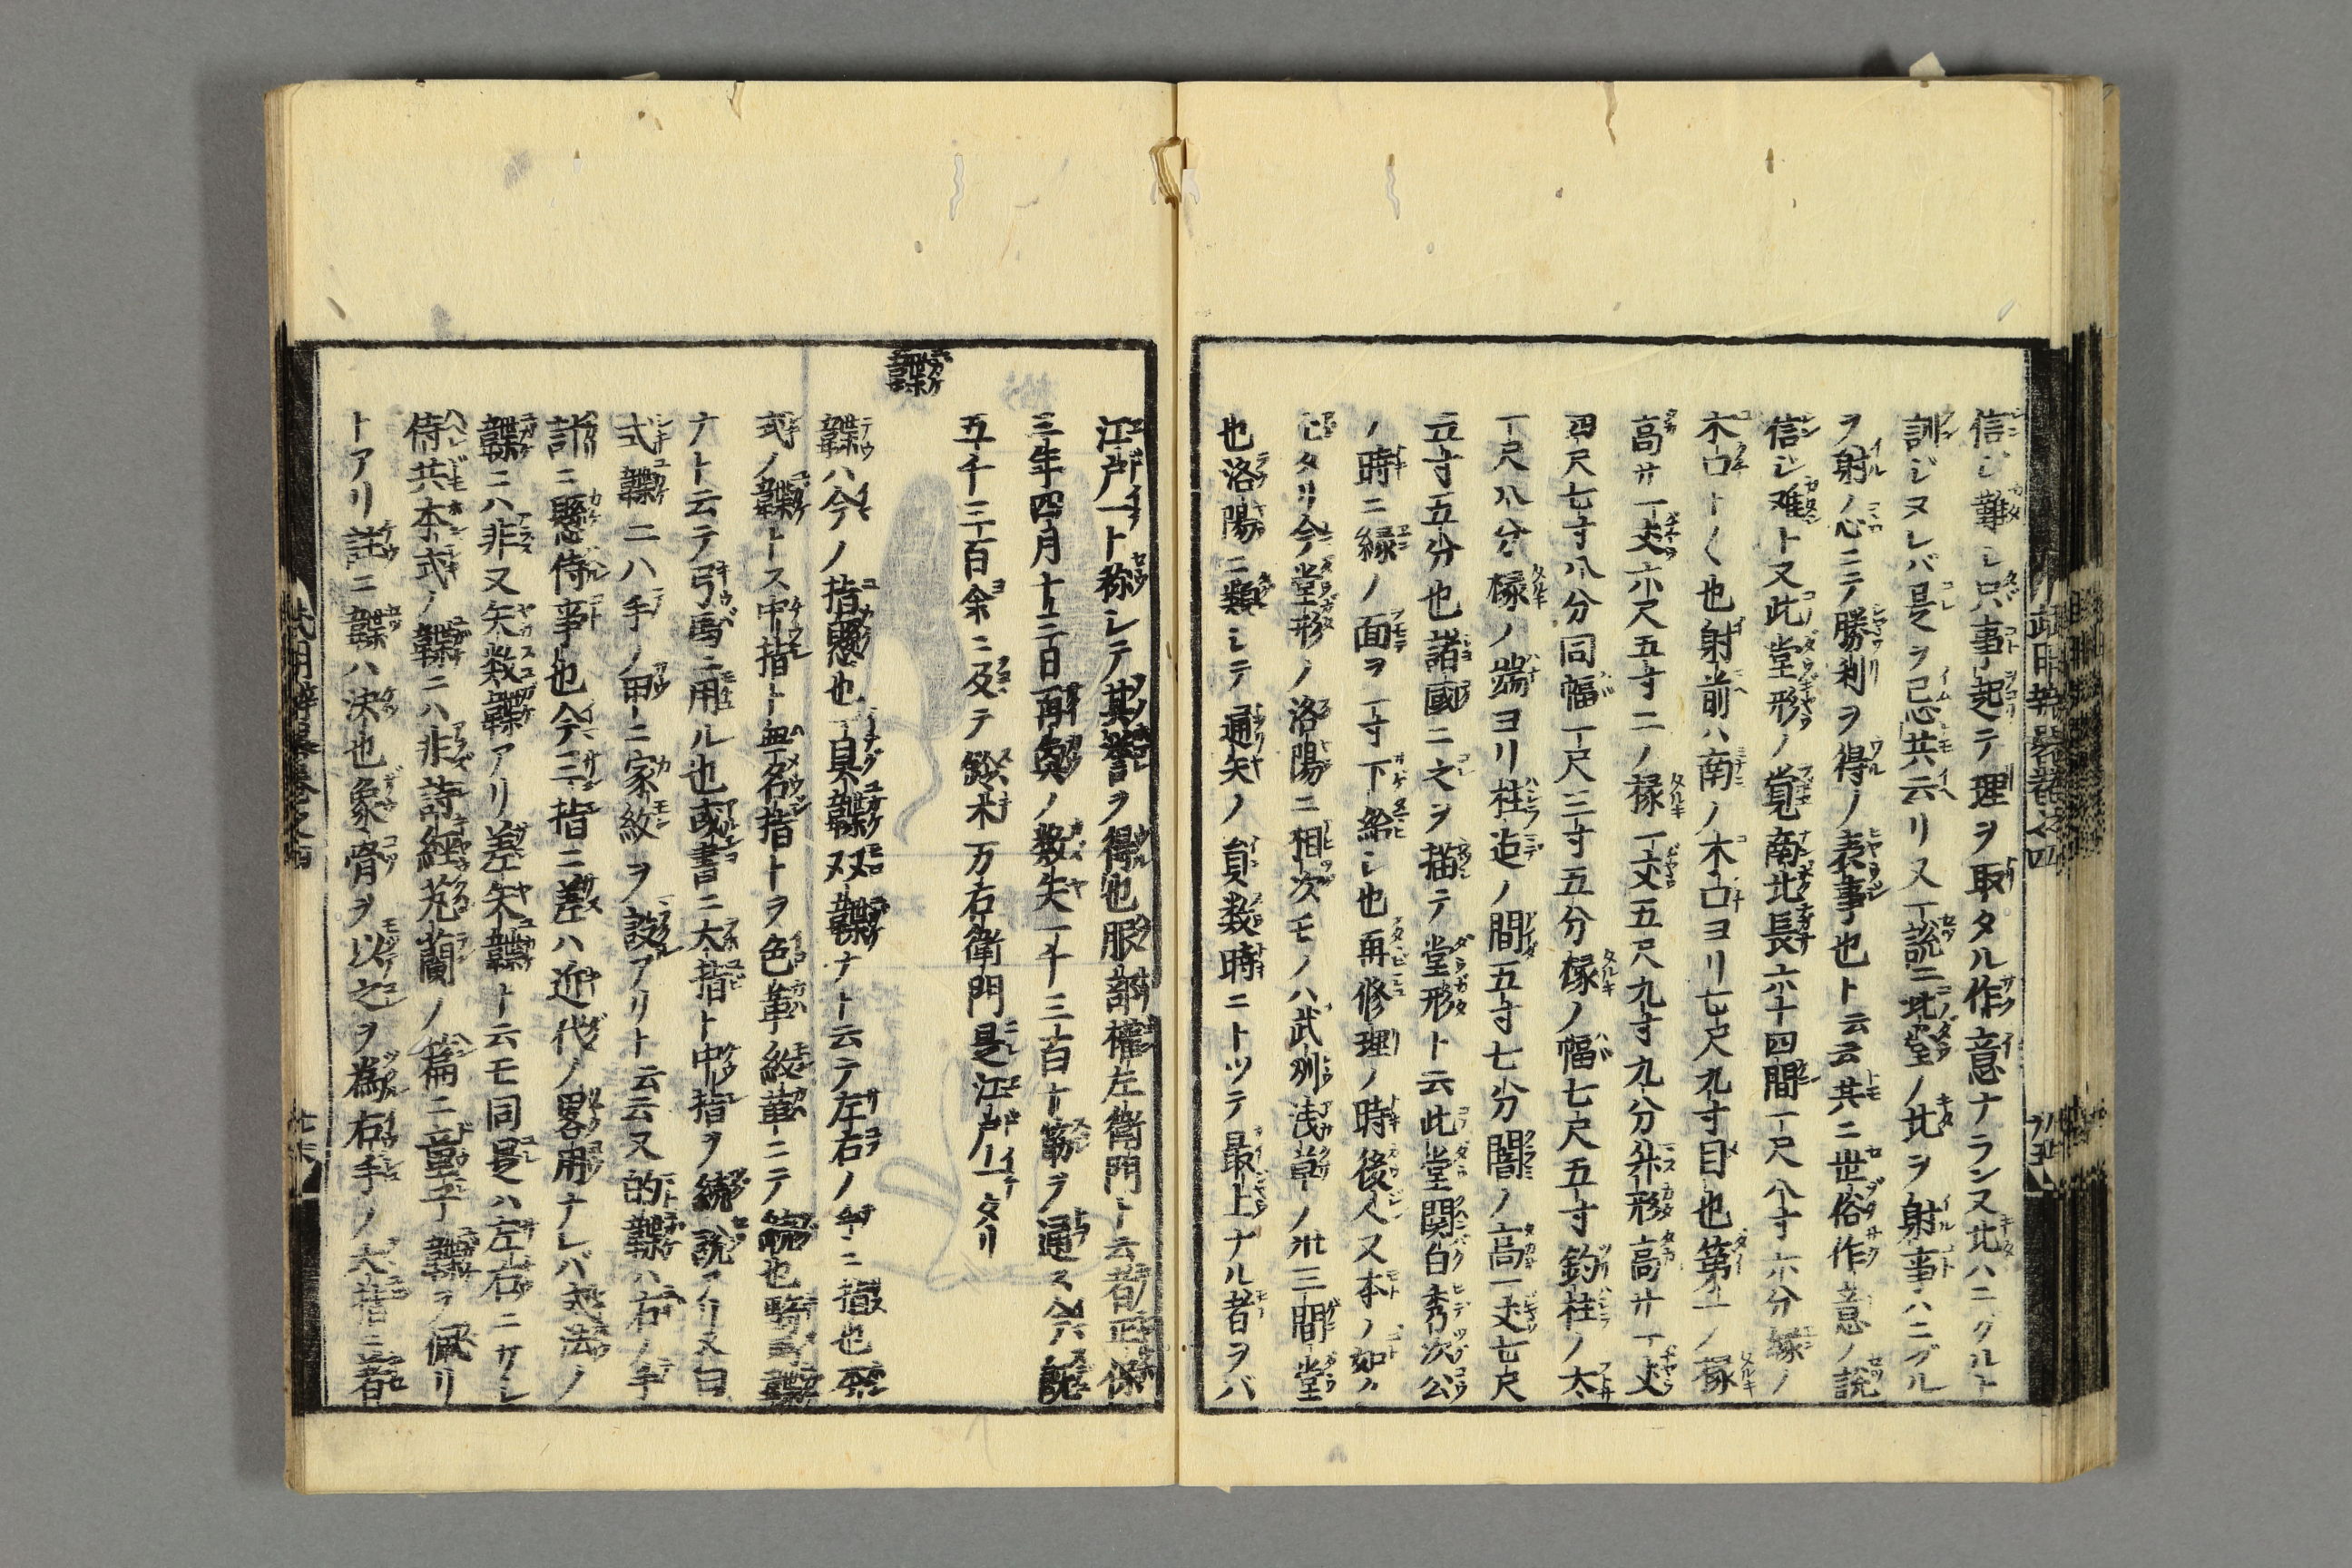 信ジ難シ只事起テ理ヲ取タル作意ナランヌ北ハニグルト
訓ジヌレバ是ヲ忌共云リ又一説ニ此堂ノ北ヲ射事ハニグル
ヲ射ノ心ニテ勝利ヲ得ノ表事也ト云云共ニ世俗作意ノ説
信ジ难ト又此堂形ノ覚南北長六十四間一尺八寸六分縁ノ
木口ト〱也射前ハ南ノ木口ヨリ七尺九寸目也第一ノ椽
高サ一丈六尺五寸二ノ椽一丈五尺九寸九分舛形高サ一丈
四尺七寸八分同幅一尺三寸五分椽ノ幅七尺五寸釣柱ノ太
一尺八分椽ノ端ヨリ柱迄ノ間五寸七分闇ノ高一丈七尺
五寸五分也諸國ニ之ヲ描テ堂形ト云此堂関白秀次公
ノ時ニ縁ノ面ヲ一寸下給シ也再修理ノ時後人又本ノ如ク
セタリ今堂形ノ洛陽ニ相次モノハ武州浅草ノ卅三間堂
也洛陽ニ類シテ通矢ノ員数時ニトツテ最上ナル者ヲバ
江戸一ト称シテ其誉ヲ得也服部權左衛門ト云者正保
三年四月十二日再興ノ数矢一千三百十筋ヲ通ス今說
五千三百余ニ及テ鈴木万右衛門是江戸一タリ
韘
韘ハ今ノ指懸也一具韘双韘ナト云テ左右ノ手ニ指也本
式ノ韘トス中指ト無名指トヲ色革紋革ニテ繞也騎馬韘
ナト云テ弓馬ニ用ル也或書ニ大指ト中指ヲ繞說アリ又曰
式韘ニハ手ノ甲ニ家紋ヲ設アリト云云又的韘ハ右ノ手
計ニ懸侍事也今三指ニ差ハ近代ノ畧用ナレバ式法ノ
韘ニハ非又矢数韘アリ差矢韘ト云モ同是ハ左右ニサシ
侍共本式ノ韘ニハ非詩經芄蘭ノ篇ニ童子韘ヲ佩リ
トアリ註ニ韘ハ决也象骨ヲ以之ヲ為右手ノ大指ニ著
武用辨畧巻之四